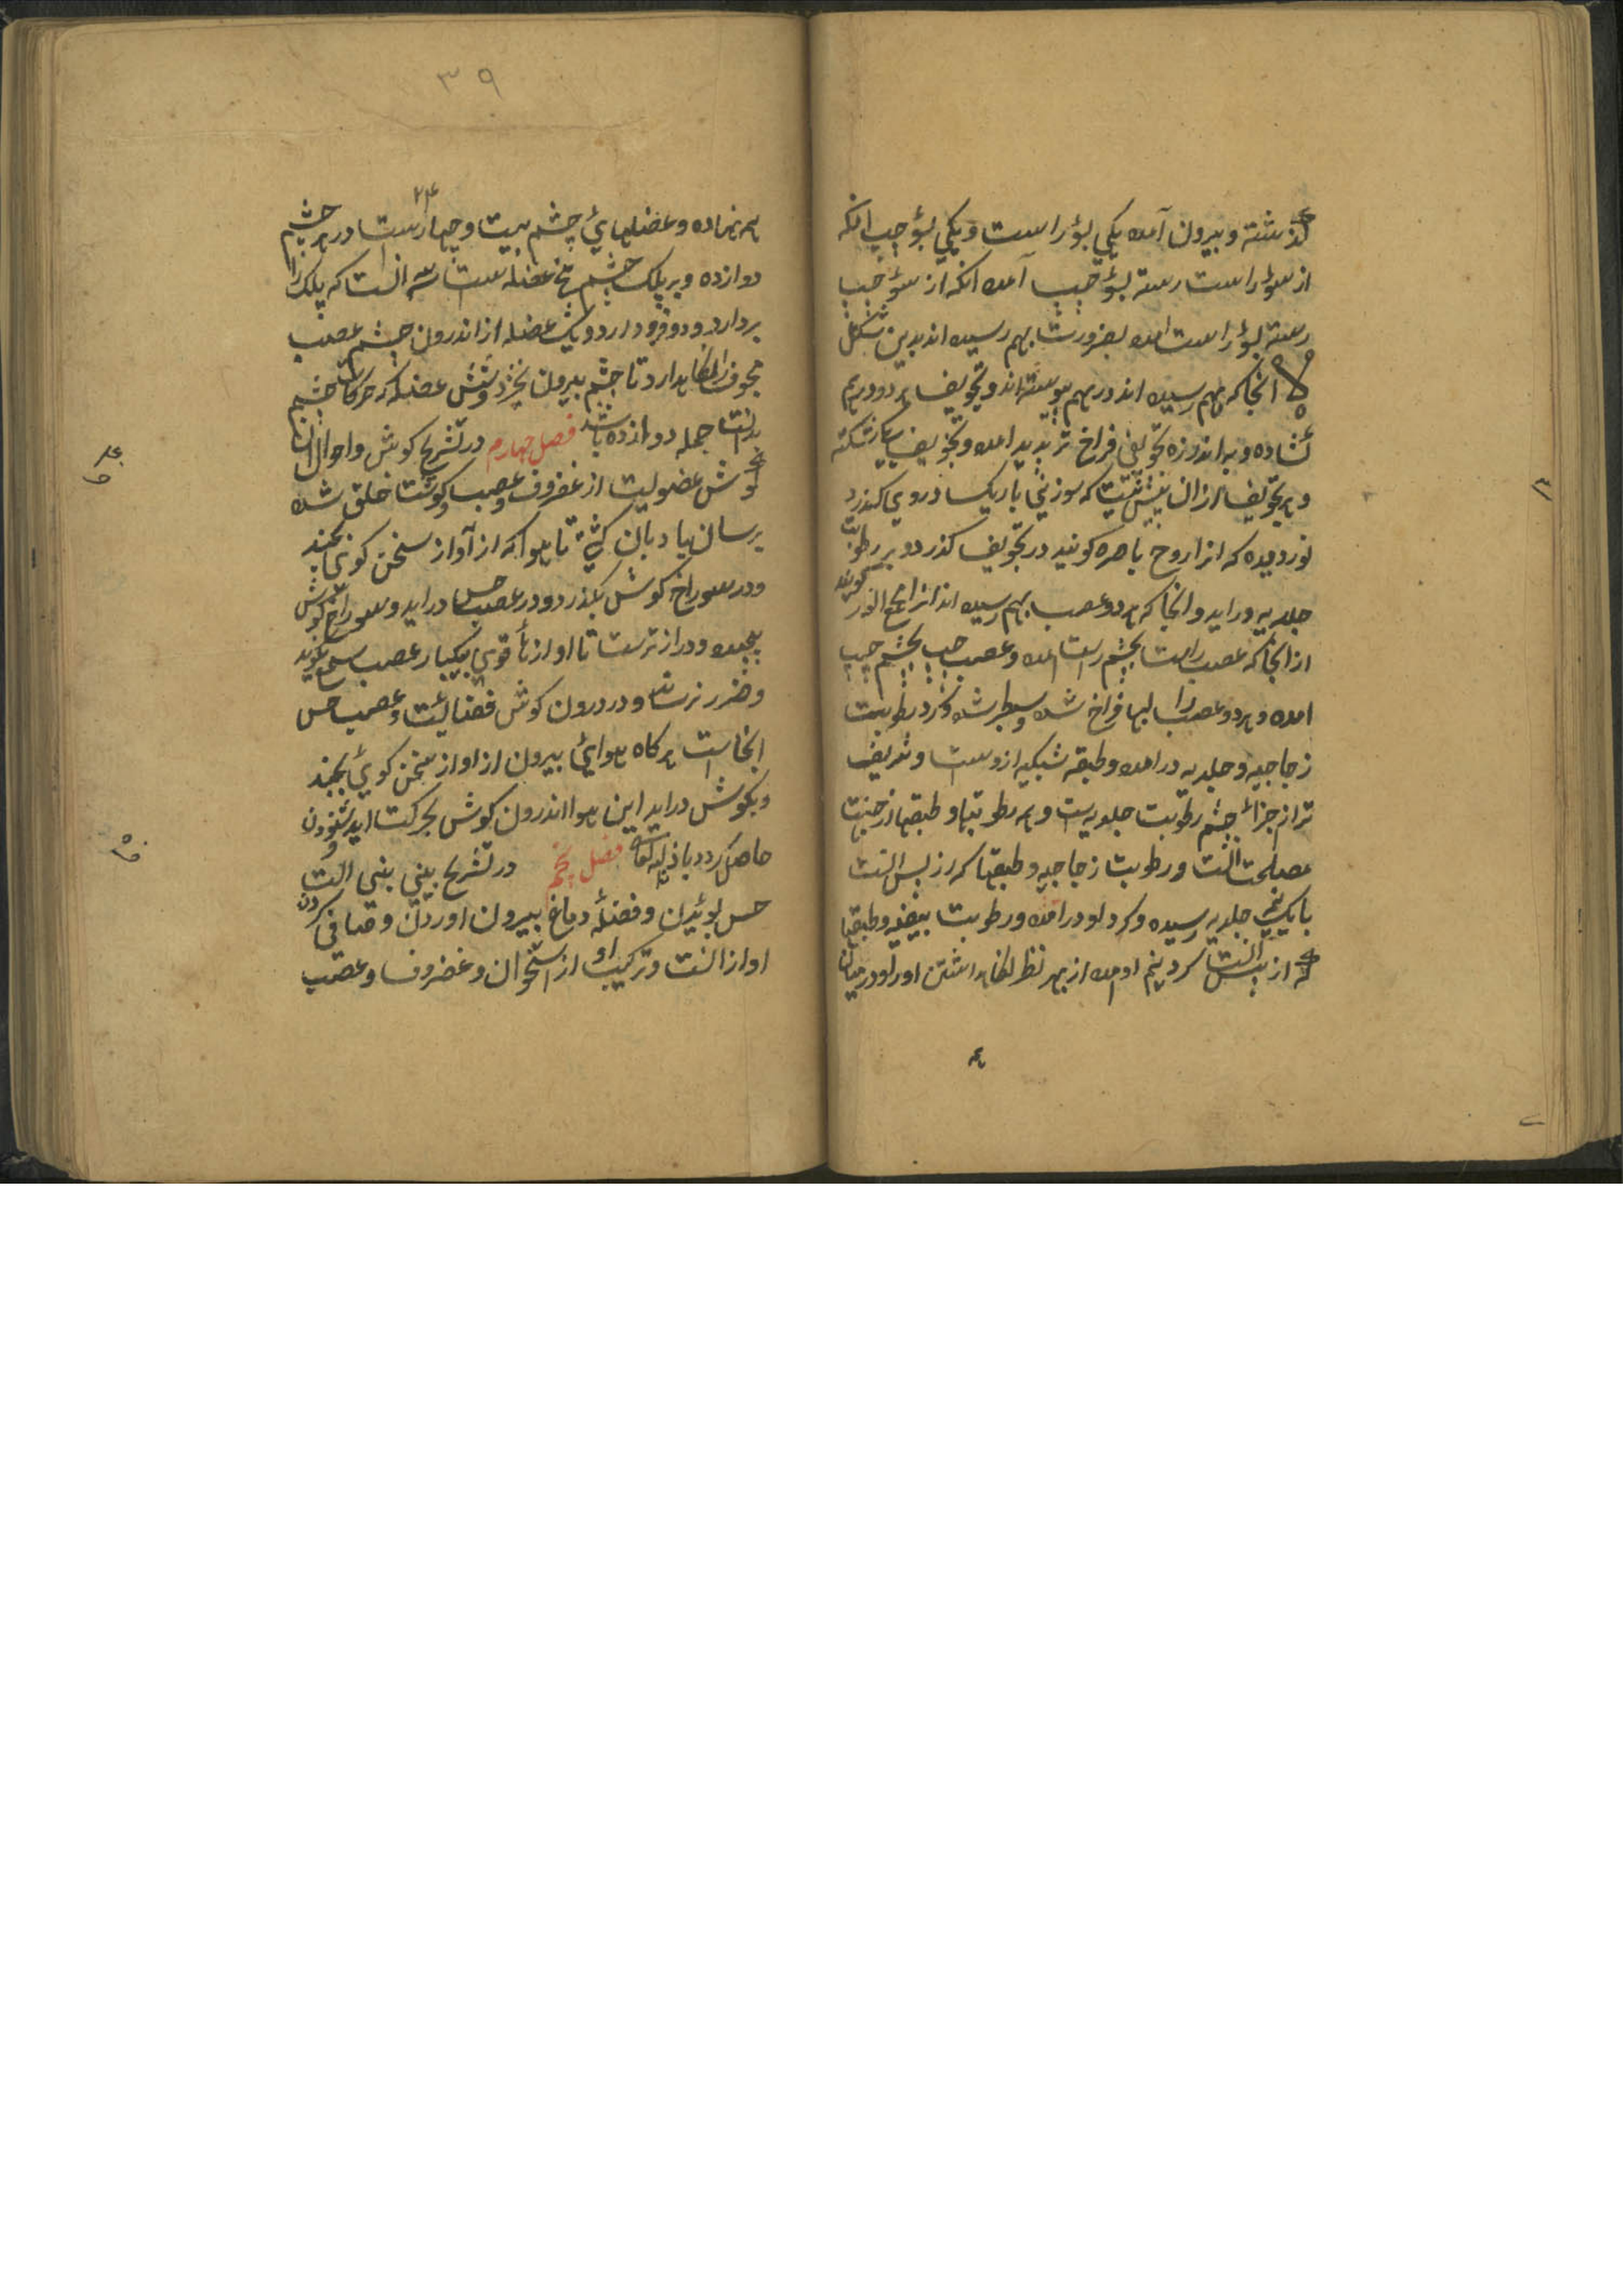 گذشته و بیرون آمده یکی بسؤ راست و یکی بسؤ چپ انکه
از سؤ راست رسته بسؤ چپ آمده انکه از سؤ چپ
رسته بسؤ راست امده بضرورت بهم رسیده اند بدین شکل
انجا که بهم رسیده اند در بهم پیوسته اند و تجویف هر دو در هم
کشاده و به اندازه تجویفی فراخ تر پدید امده و تجویف
و هر تجویف ازان بیش نیست که سوزنی باریک در وی گذرد
نور دیده که انرا روح باصره گویند در تجویف گذرد و بر رطوبت
جلدیه دراید و انجا که هر دو عصب بهم رسیده اند انرا مجمع النور گویند
از انجا که عصب راست بچشم راست امده و عصب چپ بچشم چپ
امده و هر دو عصب را لبها فراخ شده و سطبر شده و گرد رطوبت
زجاجیه و جلدیه در امده و طبقه شبکیه ازوست و شریف
تر از جزائ چشم رطوبت جلدیه ست و همه رطوبتها و طبقها از جهت
مصلحت اوست و رطوبت زجاجیه و طبقها که از پس اوست
با یک نیمه جلدیه رسیده و گرد او در امده و رطوبت بیضیه و طبقها
که از پیش اوست گرد نیم او امده از بهر نظر نگاه داشتن او را و در میان
۳۹
همه نهاده و عضلهای چشم بیست و چهار است در هر چشم
۲۴
دوازده و بر پلک چشم پنج عضله ست سه انست که پلک را
بردارد و دو فرود ارد و یک عضله از اندرون چشم عصب
مجوف را نگاه دارد تا چشم بیرون نخیزد و شش عضله که حرکات چشم
بدانست جمله دوازده باشد فصل چهارم در تشریح گوش و احوال ان
گوش عضویست از غضروف و عصب و گوشت خلق شده
برسان بادبان کشتی تا هوا که از آواز سخن گوی بجنبد
و در سوراخ گوش بگذرد و در عصب حس دراید و سوراخ گوش
پیچیده و دراز ترست تا اوازهأ قوی بیکبار عصب سمع نکوبد
و ضرر نرساند و در درون گوش فضائیست و عصب حس
انجاست هرگاه هوایئ بیرون از اواز سخن گویئ بجنبد
و بگوش دراید این هوا اندرون گوش بحرکت اید و شنودن
حاصل گردد باذن الله تعالی فصل پنجم در تشریح بینی بینی الت
حس بوئیدن و فضلهٔ دماغ بیرون اوردن و صافی کردن
اواز انست و ترکیب او از استخوان و غضروف و عصب